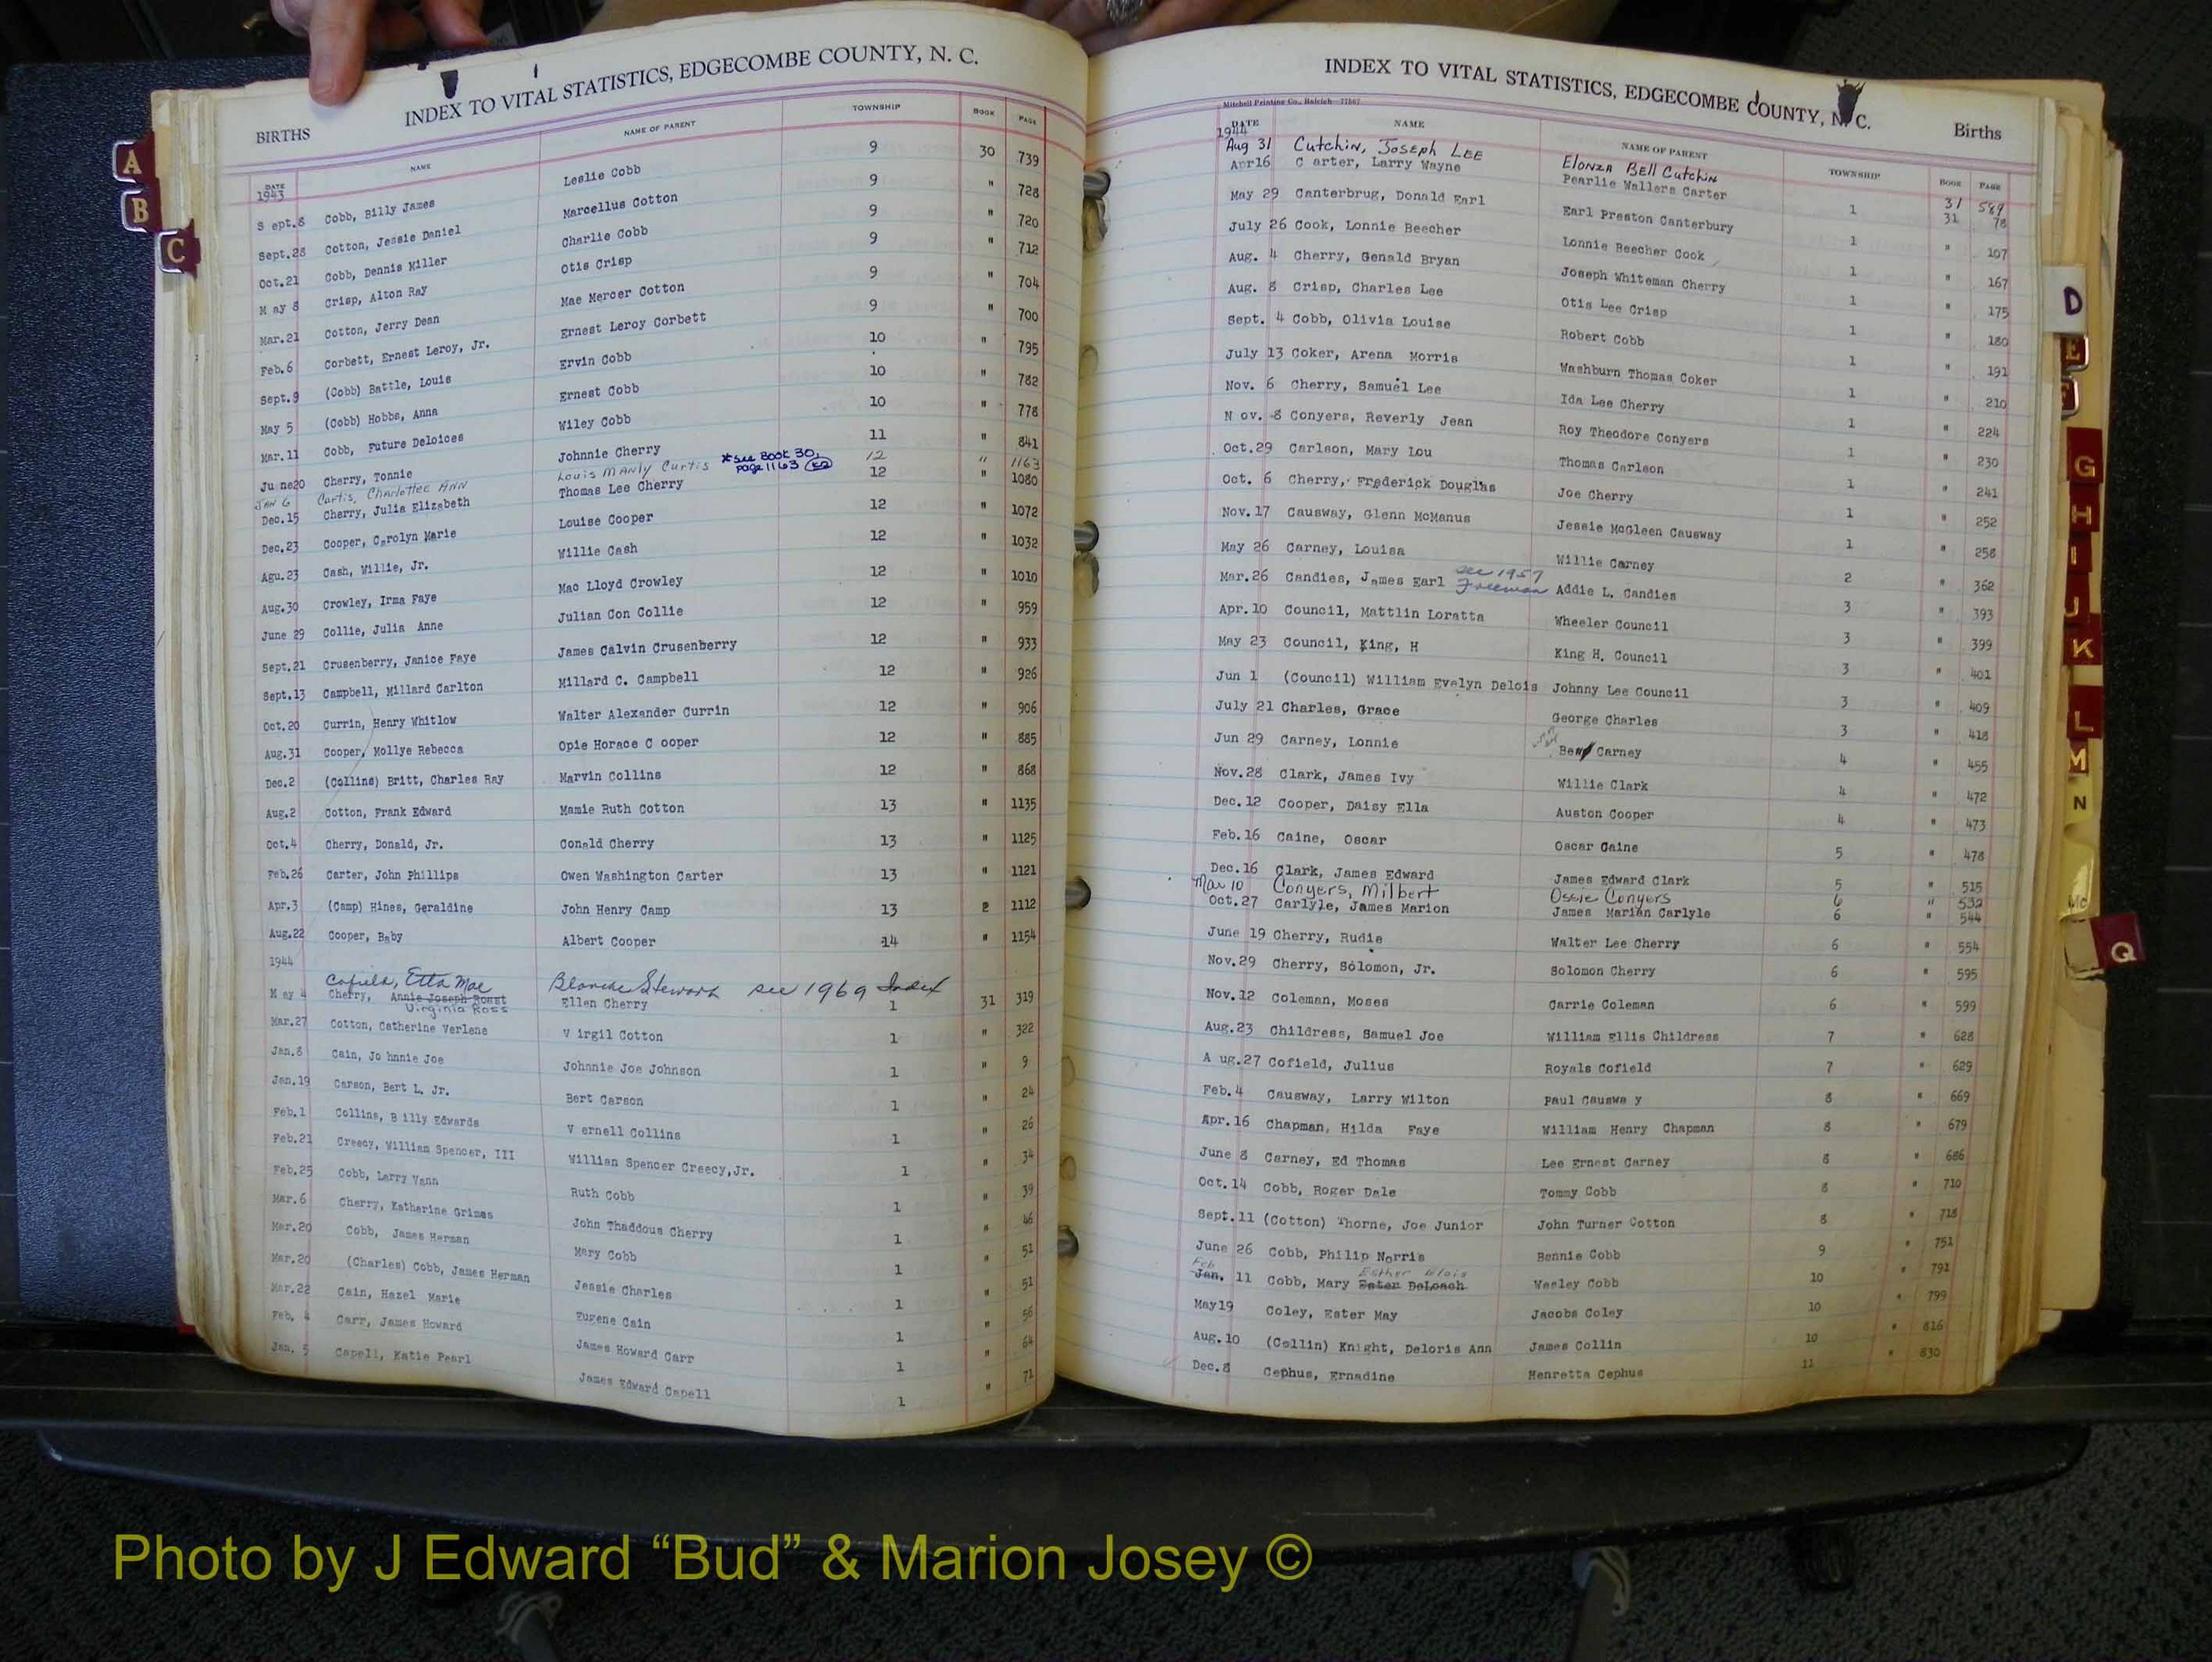 INDEX TO VITAL STATISTICS, EDGECOMBE COUNTY, N. C.
BIRTHS
DATE NAME NAME OF PARENT TOWNSHIP BOOK PAGE
1943
Sept.8 Cobb, Billy James Leslie Cobb 9 30 739
Sept.28 Cotton, Jessie Daniel Marcellus Cotton 9 " 728
Oct.21 Cobb, Dennis Miller Charlie Cobb 9 " 720
May 8 Crisp, Alton Ray Otis Crisp 9 " 712
Mar.21 Cotton, Jerry Dean Mae Mercer Cotton 9 " 704
Feb.6 Corbett, Ernest Leroy, Jr. Ernest Leroy Corbett 9 " 700
Sept.9 (Cobb) Battle, Louis Ervin Cobb 10 " 795
May 5 (Cobb) Hobbs, Anna Ernest Cobb 10 " 782
Mar.11 Cobb, Future Deloices Wiley Cobb 10 " 778
June20 Cherry, Tonnie Johnnie Cherry 11 " 841
JAN 6 Curtis, Charlottee ANN Louis MANLY Curtis *see Book 30, page 1163 12 " 1163
Dec.15 Cherry, Julia Elizabeth Thomas Lee Cherry 12 " 1080
Dec.23 Cooper, Carolyn Marie Louise Cooper 12 " 1072
Agu.23 Cash, Willie, Jr. Willie Cash 12 " 1032
Aug.30 Crowley, Irma Faye Mac Lloyd Crowley 12 " 1010
June 29 Collie, Julia Anne Julian Con Collie 12 " 959
Sept.21 Crusenberry, Janice Faye James Calvin Crusenberry 12 " 933
Sept.13 Campbell, Millard Carlton Millard C. Campbell 12 " 926
Oct.20 Currin, Henry Whitlow Walter Alexander Currin 12 " 906
Aug.31 Cooper, Mollye Rebecca Opie Horace C ooper 12 " 885
Dec.2 (Collins) Britt, Charles Ray Marvin Collins 12 " 868
Aug.2 Cotton, Frank Edward Mamie Ruth Cotton 13 " 1135
Oct.4 Cherry, Donald, Jr. Conald Cherry 13 " 1125
Feb.26 Carter, John Phillips Owen Washington Carter 13 " 1121
Apr.3 (Camp) Hines, Geraldine John Henry Camp 13 2 1112
Aug.22 Cooper, Baby Albert Cooper 14 " 1154
1944
Cofield, Etta Mae Blanche Stewart see 1969 Index
May 4 Cherry, Annie Joseph Roast Ellen Cherry 1 31 319
Virginia Ross
Mar.27 Cotton, Catherine Verlene V irgil Cotton 1 " 322
Jan.8 Cain, Jo hnnie Joe Johnnie Joe Johnson 1 " 9
Jan.19 Carson, Bert L. Jr. Bert Carson 1 " 24
Feb.1 Collins, B illy Edwards V ernell Collins 1 " 26
Feb.21 Creecy, William Spencer, III Willian Spencer Creecy,Jr. 1 " 34
Feb.25 Cobb, Larry Vann Ruth Cobb 1 " 39
Mar.6 Cherry, Katherine Grimes John Thaddous Cherry 1 " 46
Mar.20 Cobb, James Herman Mary Cobb 1 " 51
Mar.20 (Charles) Cobb, James Herman Jessie Charles 1 " 51
Mar.22 Cain, Hazel Marie Eugene Cain 1 " 56
Feb. 4 Carr, James Howard James Howard Carr 1 " 64
Jan. 5 Capell, Katie Pearl James Edward Capell 1 " 71
INDEX TO VITAL STATISTICS, EDGECOMBE COUNTY, N. C.
Births
Mitchell Printing Co., Raleigh
DATE NAME NAME OF PARENT TOWNSHIP BOOK PAGE
1944
Aug 31 Cutchin, Joseph Lee Elonza Bell Cutchin 31 589
Apr16 C arter, Larry Wayne Pearlie Wallers Carter 1 31 78
May 29 Canterbrug, Donald Earl Earl Preston Canterbury 1 " 107
July 26 Cook, Lonnie Beecher Lonnie Beecher Cook 1 " 167
Aug. 4 Cherry, Genald Bryan Joseph Whiteman Cherry 1 " 175
Aug. 8 Crisp, Charles Lee Otis Lee Crisp 1 " 180
Sept. 4 Cobb, Olivia Louise Robert Cobb 1 " 191
July 13 Coker, Arena Morris Washburn Thomas Coker 1 " 210
Nov. 6 Cherry, Samuel Lee Ida Lee Cherry 1 " 224
N ov. 8 Conyers, Reverly Jean Roy Theodore Conyers 1 " 230
Oct.29 Carlson, Mary Lou Thomas Carlson 1 " 241
Oct. 6 Cherry, Frederick Douglas Joe Cherry 1 " 252
Nov.17 Causway, Glenn McManus Jessie McGleen Causway 1 " 258
May 26 Carney, Louisa Willie Carney 2 " 362
Mar.26 Candies, James Earl see 1957 Freeman Addie L. Candies 3 " 393
Apr.10 Council, Mattlin Loratta Wheeler Council 3 " 399
May 23 Council, King, H King H. Council 3 " 401
Jun 1 (Council) William Evelyn Delois Johnny Lee Council 3 " 409
July 21 Charles, Grace George Charles 3 " 418
Jun 29 Carney, Lonnie Ben Carney 4 " 455
Nov.28 Clark, James Ivy Willie Clark 4 " 472
Dec.12 Cooper, Daisy Ella Auston Cooper 4 " 473
Feb.16 Caine, Oscar Oscar Caine 5 " 478
Dec.16 Clark, James Edward James Edward Clark 5 " 515
Mar 10 Conyers, Milbert Ossie Conyers 6 " 532
Oct.27 Carlyle, James Marion James Marian Carlyle 6 " 544
June 19 Cherry, Rudie Walter Lee Cherry 6 " 554
Nov.29 Cherry, Solomon, Jr. Solomon Cherry 6 " 595
Nov.12 Coleman, Moses Carrie Coleman 6 " 599
Aug.23 Childress, Samuel Joe William Ellis Childress 7 " 628
A ug.27 Cofield, Julius Royals Cofield 7 " 629
Feb.4 Causway, Larry Wilton Paul Causwa y 8 " 669
Apr.16 Chapman, Hilda Faye William Henry Chapman 8 " 679
June 8 Carney, Ed Thomas Lee Ernest Carney 8 " 686
Oct.14 Cobb, Roger Dale Tommy Cobb 8 " 710
Sept.11 (Cotton) Thorne, Joe Junior John Turner Cotton 8 " 718
June 26 Cobb, Philip Norris Bennie Cobb 9 " 751
Feb Esther Elois
Jan. 11 Cobb, Mary Ester DeLoach Wesley Cobb 10 " 791
May19 Coley, Ester May Jacobs Coley 10 " 799
Aug.10 (Collin) Knight, Deloris Ann James Collin 10 " 816
Dec.8 Cephus, Ernadine Henretta Cephus 11 " 830
A
B
C
D
E
F
G
H
I
J
K
L
M
N
Mc
Q
Photo by J Edward “Bud” & Marion Josey ©